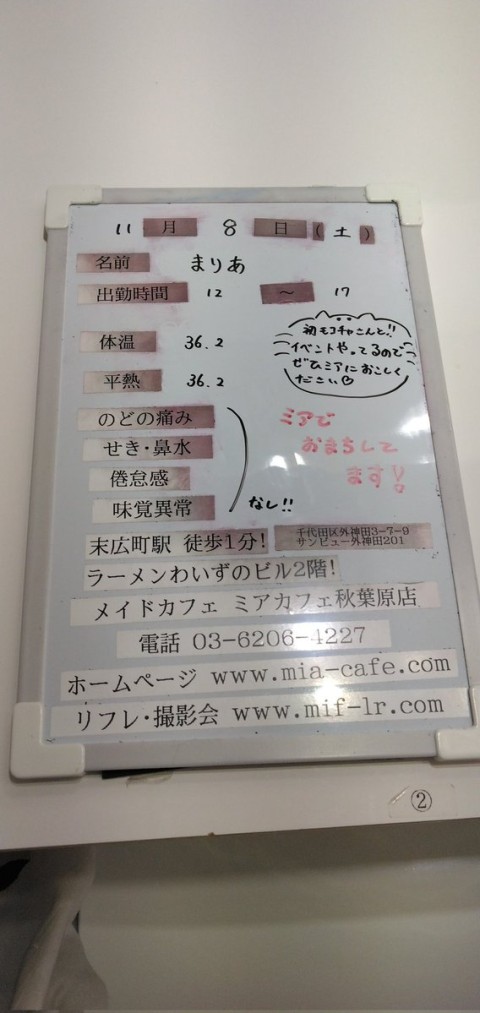 11 月 8 日 (土)
名前 まりあ
出勤時間 12 ～ 17
体温 36.2
平熱 36.2
初モコチャこんと!!
イベントやってるので
ぜひミアにおこしく
ださい♡
のどの痛み
せき・鼻水
倦怠感
味覚異常
なし!!
ミアで
おまちして
ます!
末広町駅 徒歩1分!
千代田区外神田3-7-9
サンビュー外神田201
ラーメンわいずのビル2階!
メイドカフェ ミアカフェ秋葉原店
電話 03-6206-4227
ホームページ www.mia-cafe.com
リフレ・撮影会 www.mif-lr.com
②